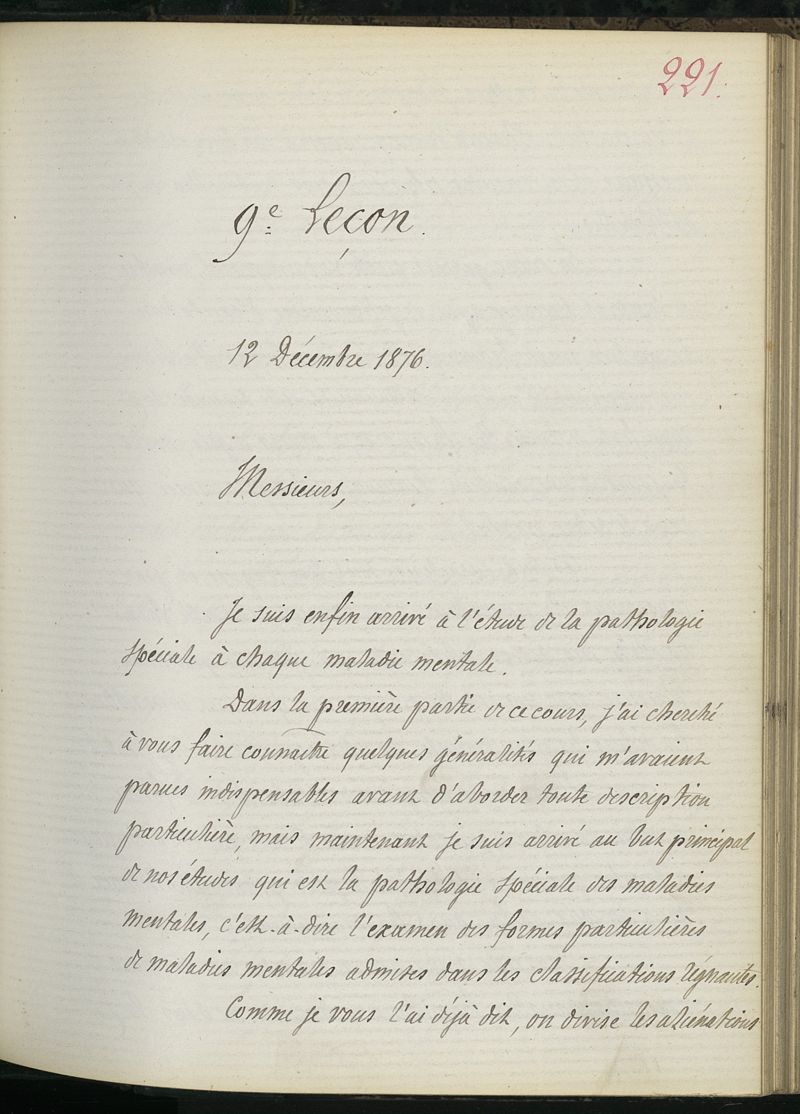 221.
9e Leçon.
12 Décembre 1876.
Messieurs,
Je suis enfin arrivé à l'étude de la pathologie
spéciale à chaque maladie mentale.
Dans la première partie de ce cours, j'ai cherché
à vous faire connaître quelques généralités qui m'avaient
parues indispensables avant d'aborder toute description
particulière, mais maintenant je suis arrivé au but principal
de nos études qui est la pathologie spéciale des maladies
mentales, c'est-à-dire l'examen des formes particulières
de maladies mentales admises dans les classifications régnantes.
Comme je vous l'ai déjà dit, on divise les aliénations